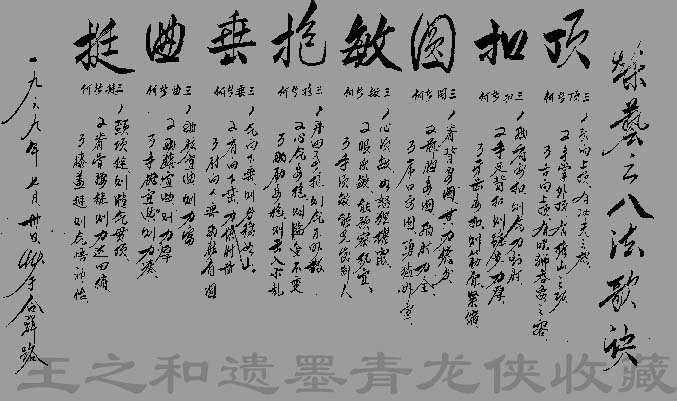 藝之八法歌诀
顶
三顶皆何
1头向上顶有冲天之
2手掌外顶有推山之功
3舌向上顶有吼狮吞象之容
扣
三扣皆何
1肩要扣则气力到肘
2手足背扣则力厚
3牙要扣则筋骨紧缩
圆
三圆皆何
1脊背要圆其力摧身
2前胸要圆两肘力全
3虎口要圆勇猛外宣
敏
三敏皆何
1心要敏如怒狸攫鼠
2眼要敏能预察机宜
3手要敏能先发制人
抱
三抱皆何
1丹田要抱则气不外散
2心气要抱则临变不变
3两肋要抱则出入不乱
垂
三垂皆何
1气向下垂则身稳如山
2肩向下垂力催肘前
3肘向下垂两肱自圆
曲
三曲皆何
1两肱宜曲则力富
2两膝宜曲则力厚
3手腕宜曲则力凑
挺
三挺皆何
1颈项挺则精气贯顶
2脊骨腰挺则力达四梢
3膝盖挺则气恬神怡
一九六九年七月廿日抄于合群路
王之和遗墨青龙侠收藏